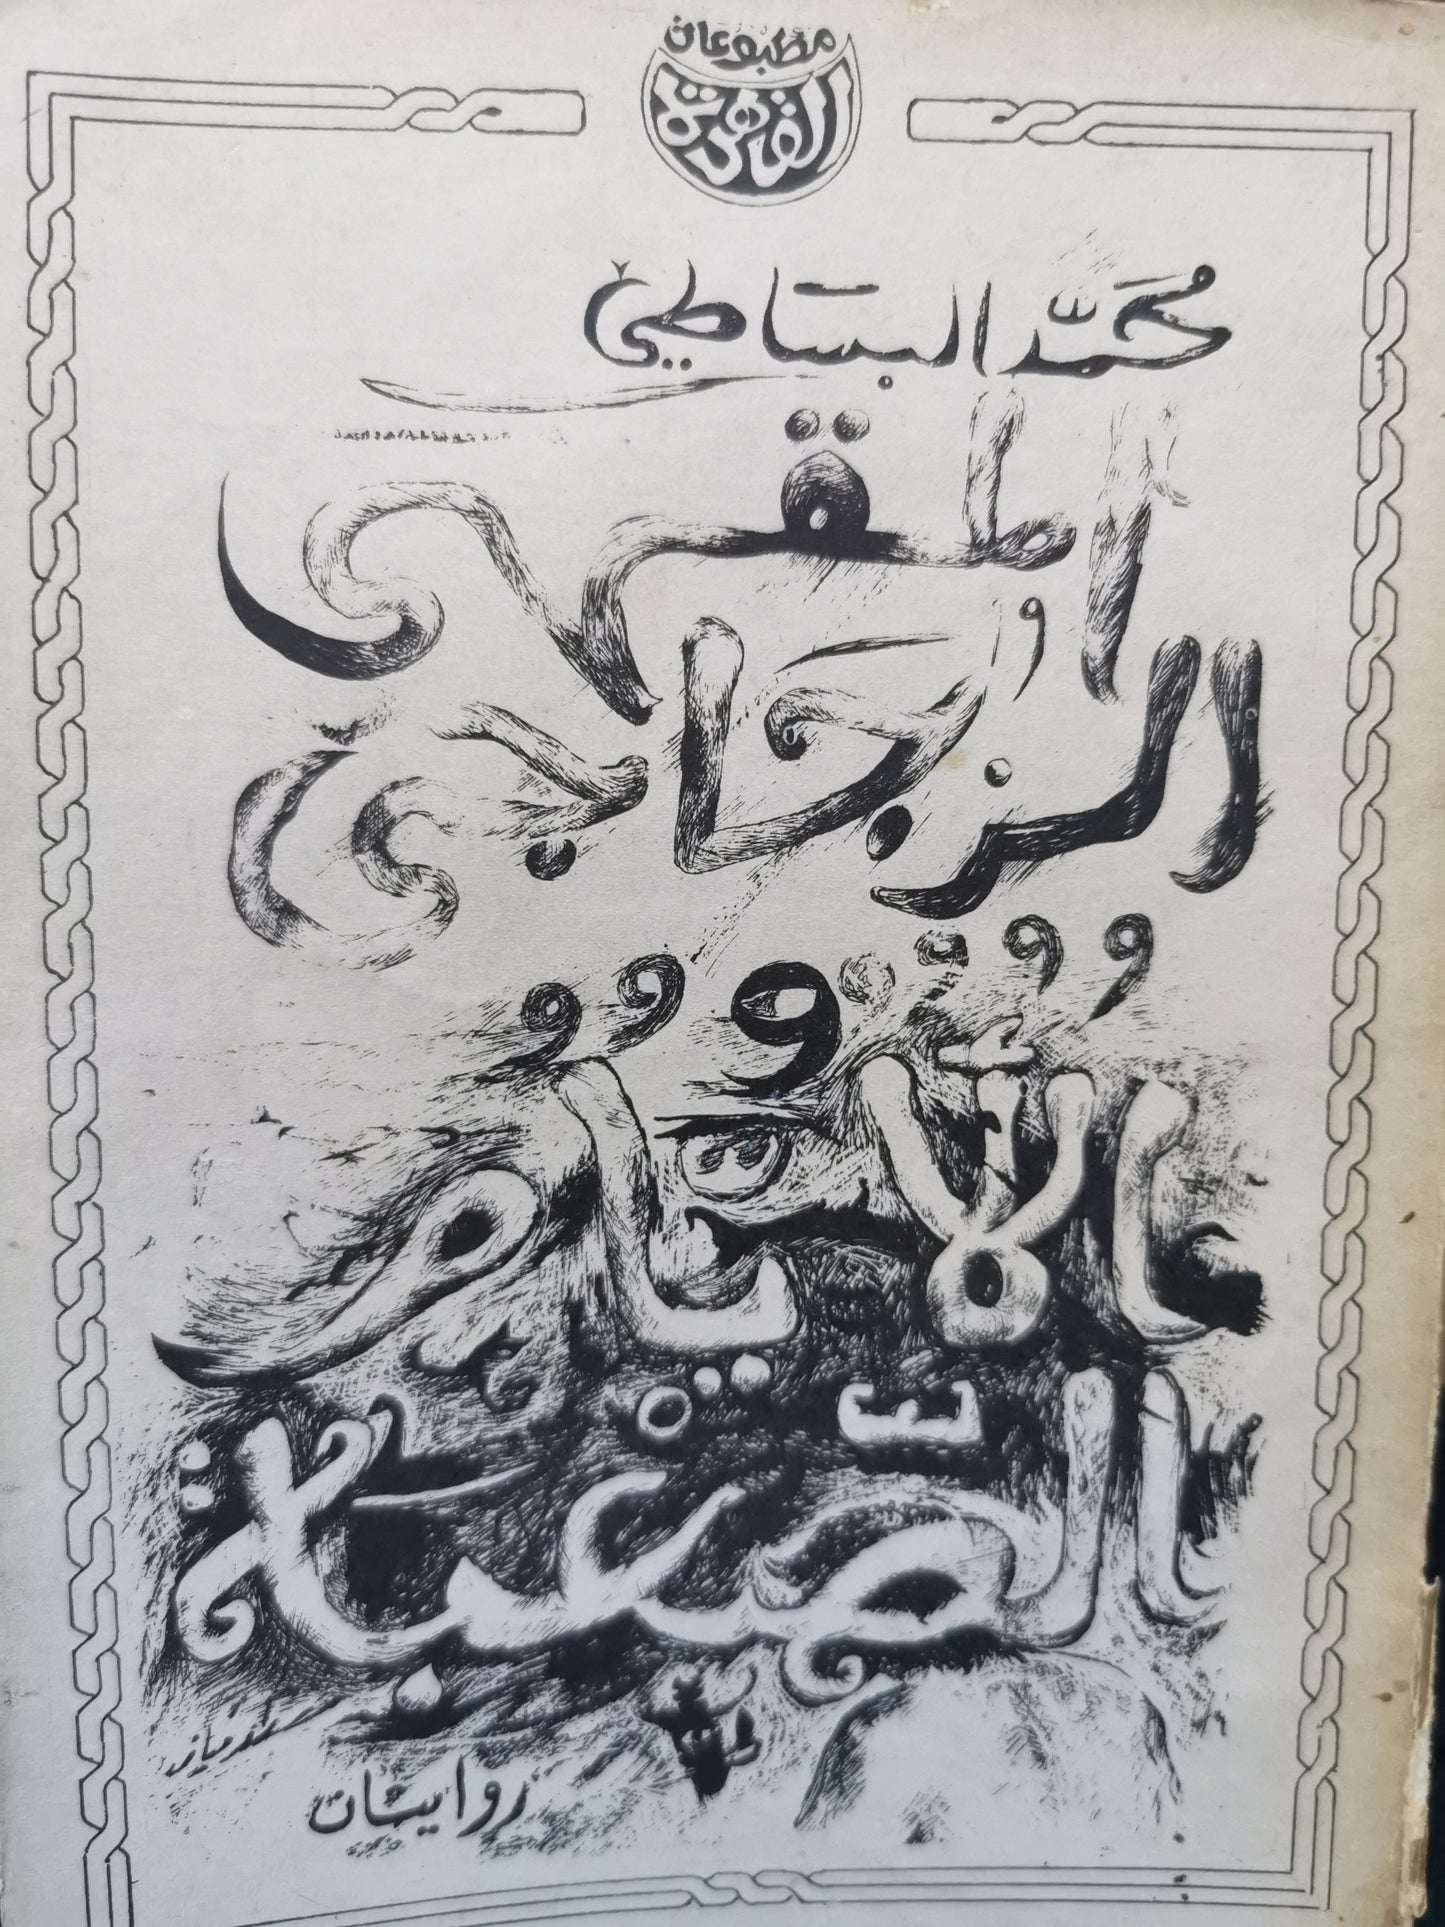 مطبوعات
القاهرة
محمّد البساطي
المقهى
الزجاجي
و
الأيّام
الصّعبة
روايتان